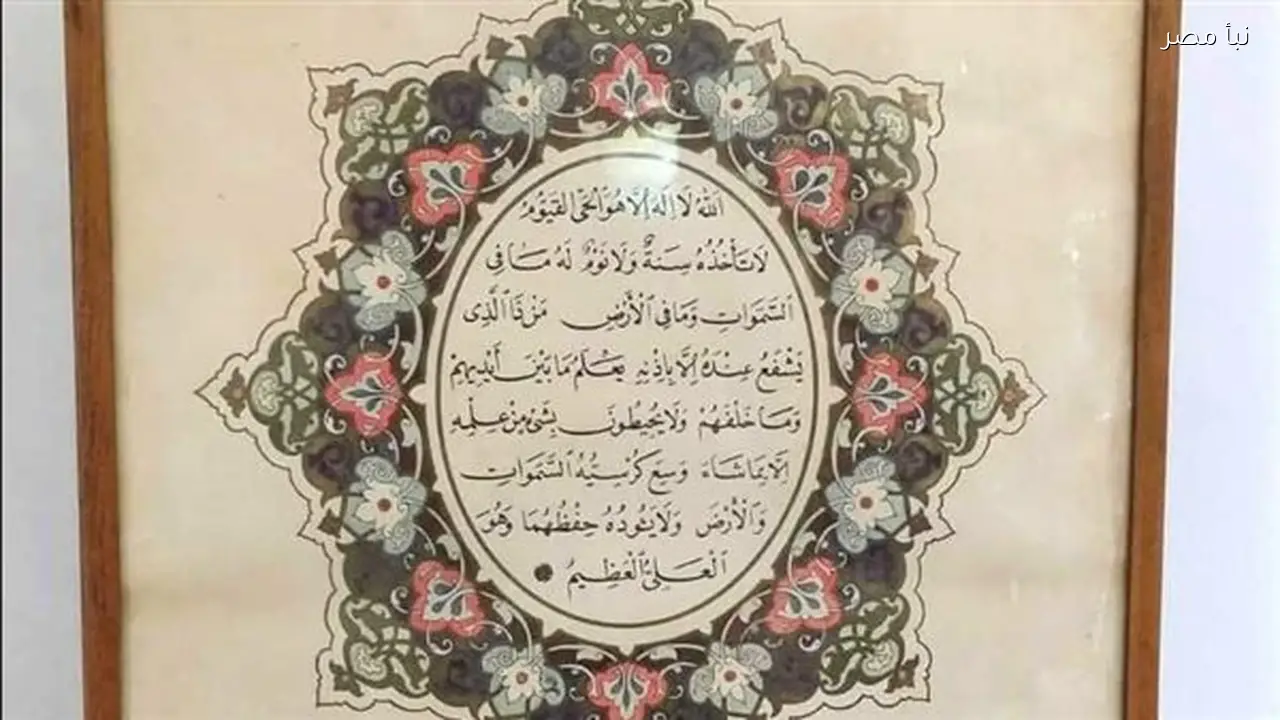 نبأ مصر
اَللّٰهُ لَا اِلٰهَ اِلَّا هُوَ الْحَىُّ الْقَيُّومُ
لَا تَأْخُذُهُ سِنَةٌ وَلَا نَوْمٌ لَهُ مَا فِى
السَّمٰوَاتِ وَمَا فِى الْأَرْضِ مَنْ ذَا الَّذِى
يَشْفَعُ عِنْدَهُ اِلَّا بِاِذْنِهِ يَعْلَمُ مَا بَيْنَ أَيْدِيهِمْ
وَمَا خَلْفَهُمْ وَلَا يُحِيطُونَ بِشَىْءٍ مِنْ عِلْمِهِ
اِلَّا بِمَا شَاءَ وَسِعَ كُرْسِيُّهُ السَّمٰوَاتِ
وَالْأَرْضَ وَلَا يَئُودُهُ حِفْظُهُمَا وَهُوَ
الْعَلِىُّ الْعَظِيمُ